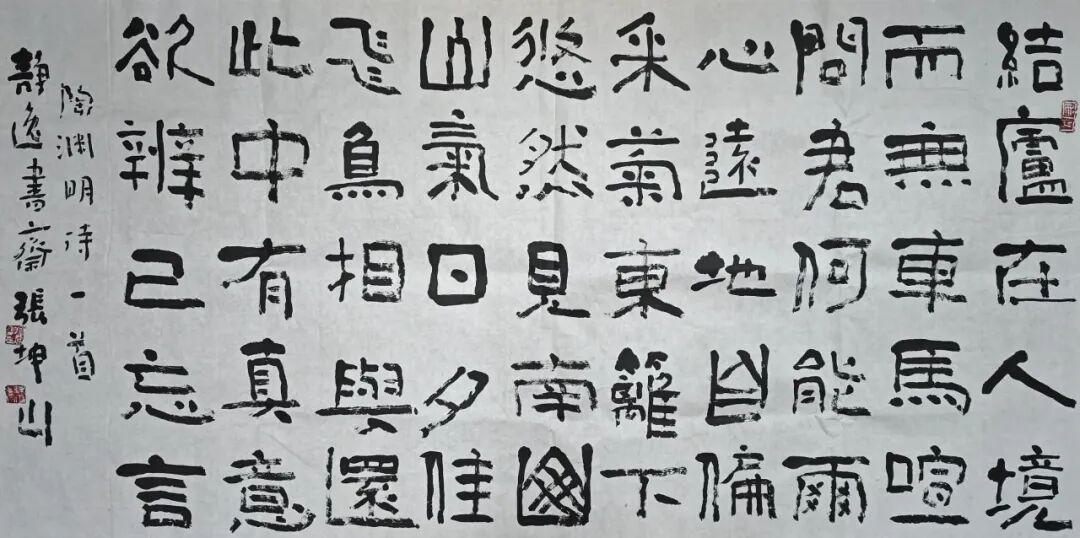 結廬在人境
而無車馬喧
問君何能爾
心遠地自偏
采菊東籬下
悠然見南
山氣日夕佳
飛鳥相與還
此中有真意
欲辨已忘言
陶渊明诗一首
靜逸書齋張坤山